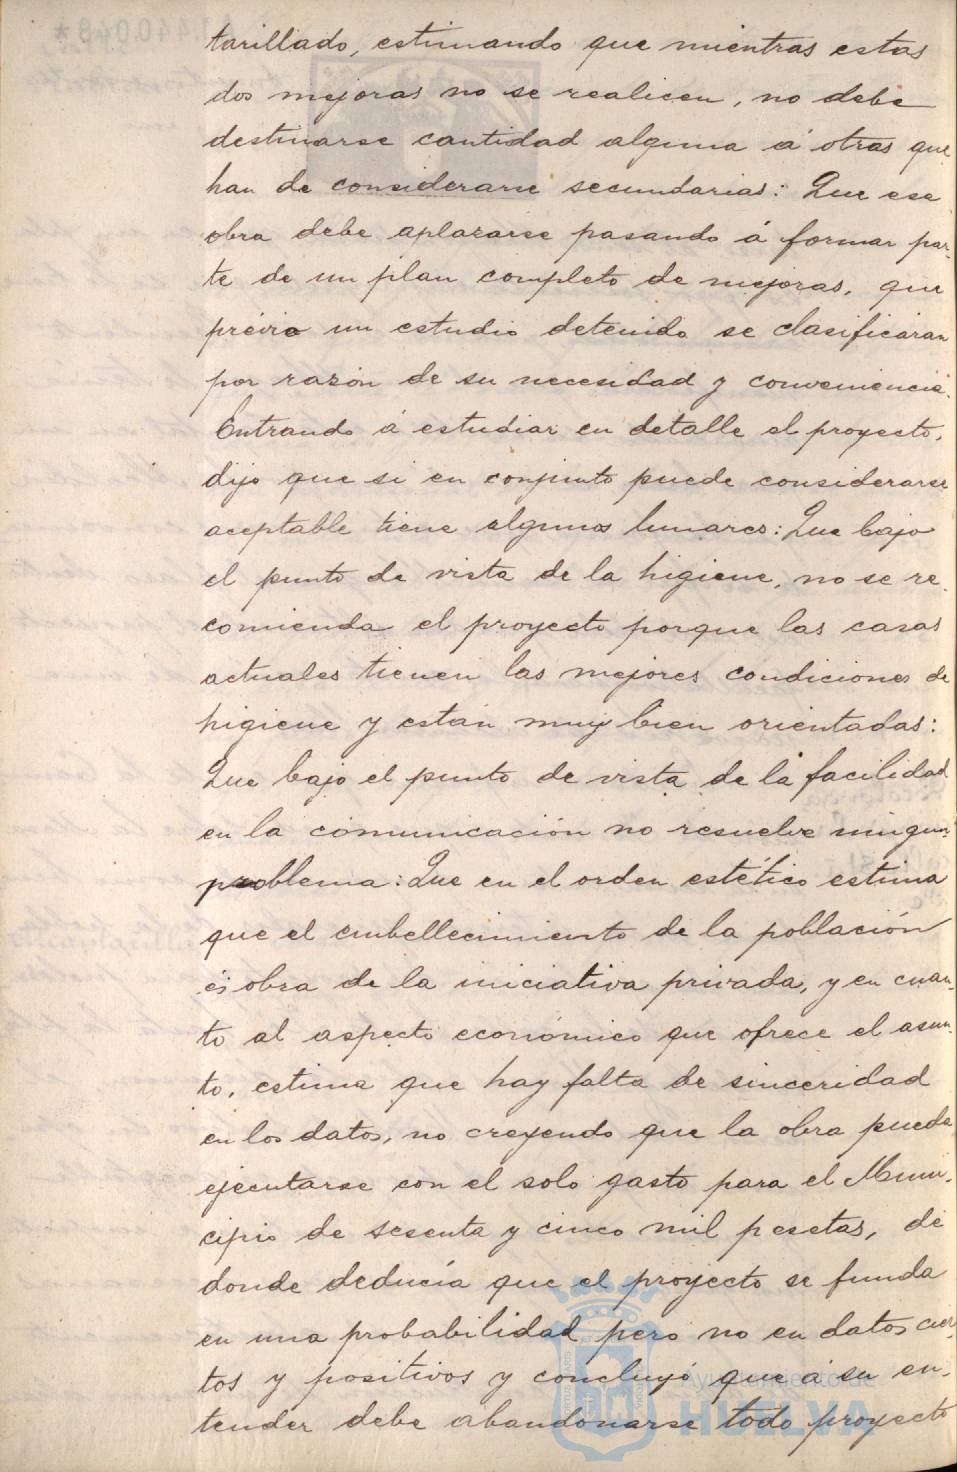 tarillado, estimando que mientras estas
dos mejoras no se realicen, no debe
destinarse cantidad alguna á otras que
han de considerarse secundarias: Que esa
obra debe aplazarse pasando á formar par-
te de un plan completo de mejoras, que
prévio un estudio detenido se clasificarán
por razón de su necesidad y conveniencia.
Entrando á estudiar en detalle el proyecto,
dijo que si en conjunto puede considerarse
aceptable tiene algunos lunares: Que bajo
el punto de vista de la higiene, no se re-
comienda el proyecto porque las casas
actuales tienen las mejores condiciones de
higiene y están muy bien orientadas:
Que bajo el punto de vista de la facilidad
en la comunicación no resuelve ningun
problema: Que en el orden estético estima
que el embellecimiento de la población
és obra de la iniciativa privada, y en cuan-
to al aspecto económico que ofrece el asun-
to, estima que hay falta de sinceridad
en los datos, no creyendo que la obra pueda
ejecutarse con el solo gasto para el Muni-
cipio de sesenta y cinco mil pesetas, de
donde deducía que el proyecto se funda
en una probabilidad pero no en datos cier-
tos y positivos y concluyó que á su en-
tender debe abandonarse todo proyecto
Ayuntamiento de
HUELVA